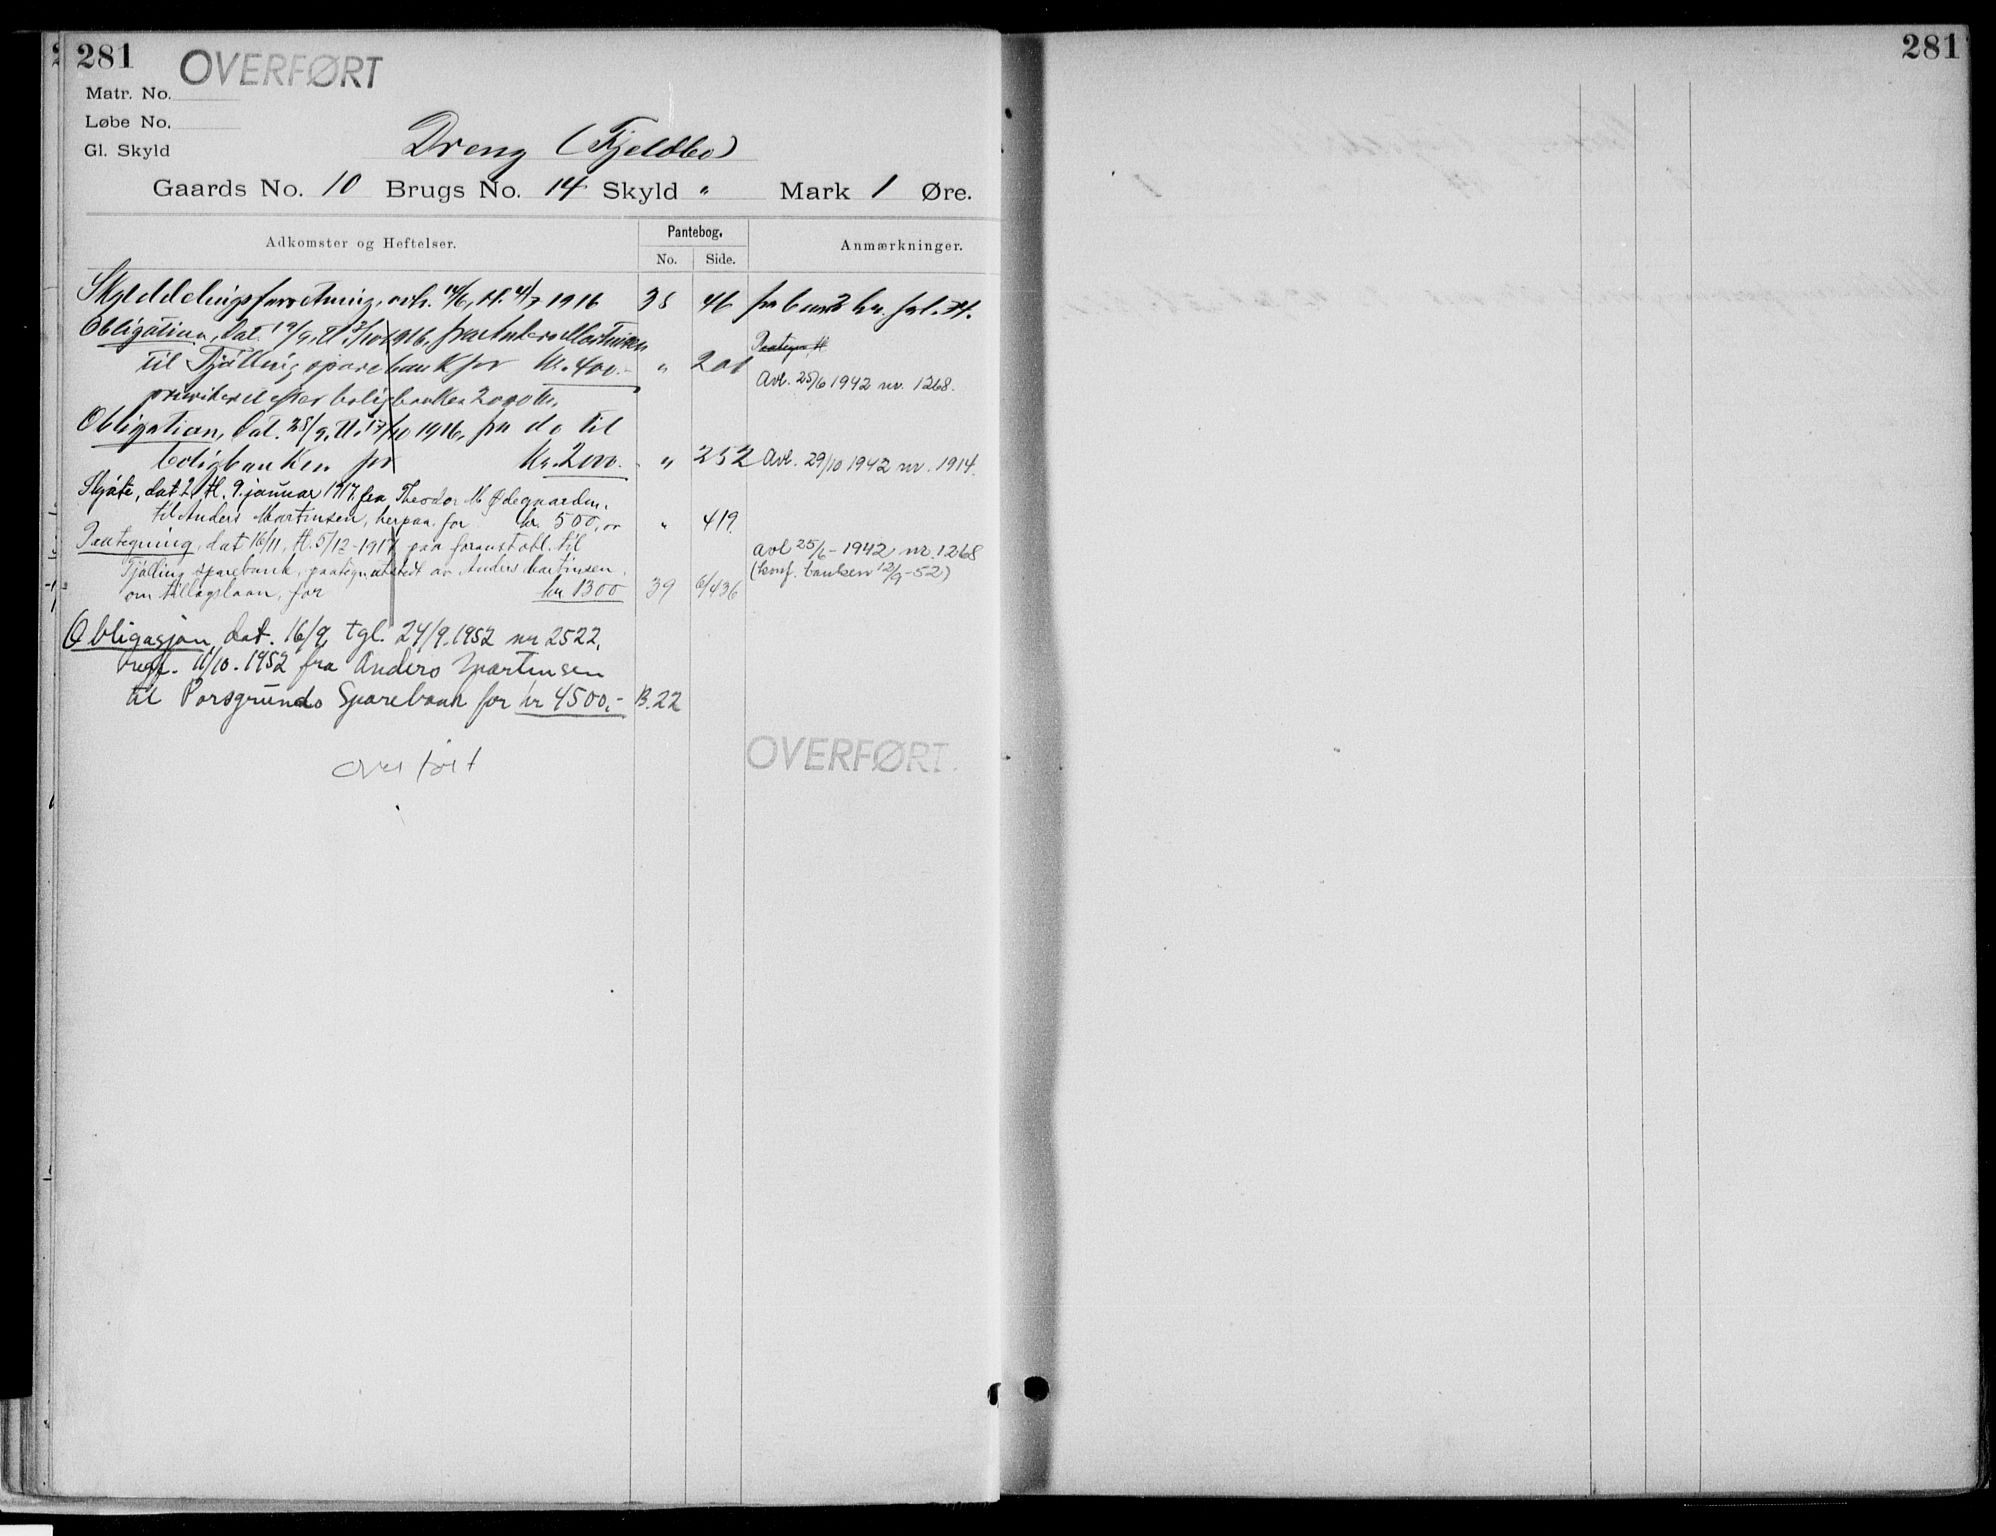 281
OVERFØRT
Matr. No.
Løbe No.
Gl. Skyld
Dreng (Fjeldbo)
Gaards No. 10 Brugs No. 14 Skyld " Mark 1 Øre.
Adkomster og Heftelser.
Pantebog.
No. Side.
Anmærkninger.
Skylddelingsforretning, avh. 14/6, tl. 4/7 1916 38 46 fra bnr 2 hr.
Obligation, dat. 19/9, tl. 3/10 1916, fra Anders Martinsen
til Tjølling sparebank for Kr. 400.- " 201
Paategn. tl.
Avl. 25/6 1942 nr. 1268.
prioritered efter boligbanken 2000 kr.
Obligation, dat. 28/9, tl. 17/10 1916, fra do til
boligbanken for Kr. 2000.- " 252 Avl. 29/10 1942 nr. 1914.
Skjøte, dat 2, tl. 9. januar 1917, fra Theodor M. Ødegaarden,
til Anders Martinsen, herpaa for kr. 500,00 " 419.
Paategning, dat 16/11, tl. 5/12-1917 paa foranst. obl. til
Tjølling sparebank, paategn. utstedt av Anders Martinsen
om tillagslaan, for kr 1300 39 6/436
avl 25/6 - 1942, nr. 1268
(konf. banken 12/9-52)
Obligasjon, dat. 16/9, tgl. 24/9.1952 nr 2522,
11/10. 1952 fra Anders Martinsen
til Porsgrunds Sparebank for kr 4500,- B.22
overført
OVERFØRT.
281